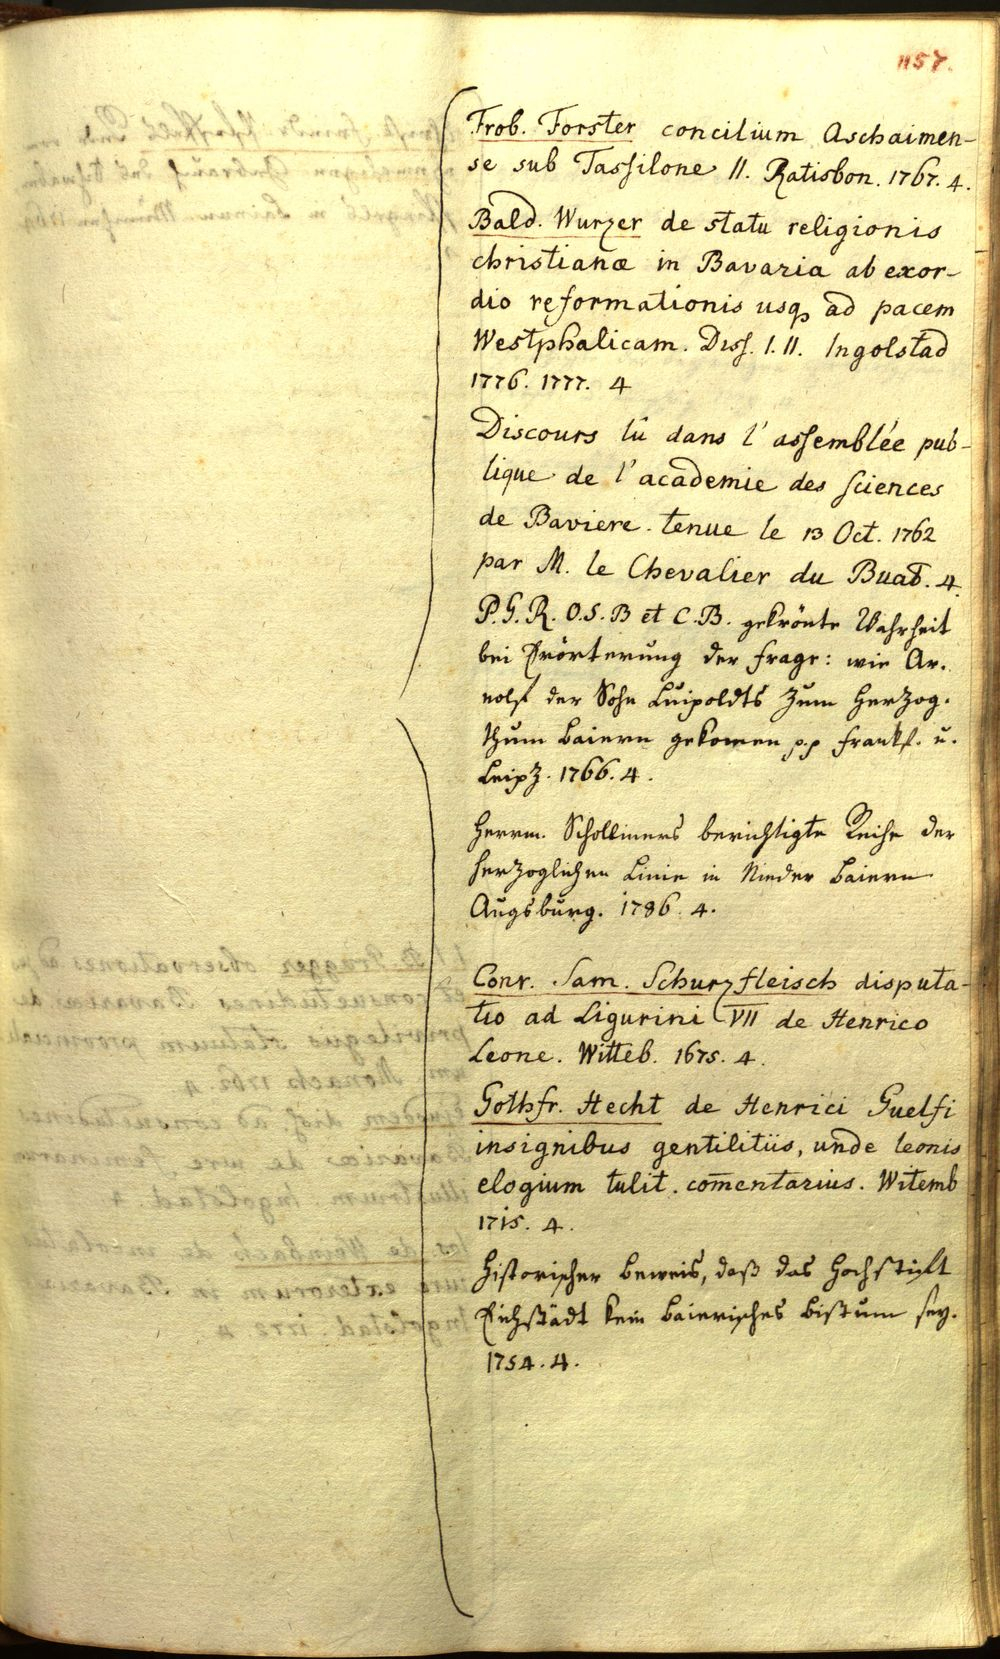 1157.
Frob. Forster concilium Aschaimen-
se sub Tassilone II. Ratisbon. 1767. 4.
Bald. Wurzer de statu religionis
christianæ in Bavaria ab exor-
dio reformationis usq ad pacem
Westphalicam. Diss. I. II. Ingolstad
1776. 1777. 4
Discours lû dans l'assemblée pub-
lique de l'academie des sciences
de Baviere tenue le 13 Oct. 1762
par M. le Chevalier du Buat. 4.
P. G. R. O. S. B et C. B. gekrönte Wahrheit
bei Erörterung der Frage: wie Ar-
nolf der Sohn Luipoldts zum Herzog-
thum Baiern gekomen p.p Frankf. u.
Leipz. 1766. 4.
Herrm. Scholliners berichtigte Reihe der
herzoglichen Linie in Nieder Baiern
Augsburg. 1786. 4.
Conr. Sam. Schurzfleisch disputa-
tio ad Ligurini VII de Henrico
Leone. Witteb. 1675. 4.
Gothfr. Hecht de Henrici Guelfi
insignibus gentilitiis, unde leonis
elogium tulit. comentarius. Witemb
1715. 4.
Historischer Beweis, daß das Hochstift
Eichstädt kein Baierisches Bistum sey.
1754. 4.